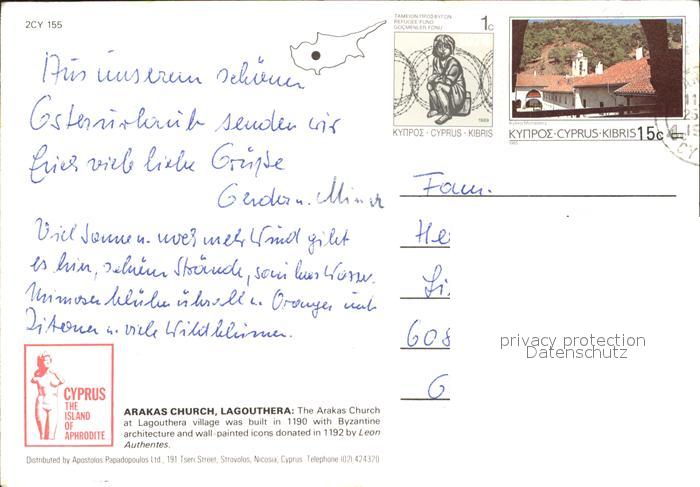 2CY 155
Aus unserem schönen
Osterurlaub senden wir
Euch viele liebe Grüße
Gerda u.
Viel Sonne u. noch mehr Wind gibt
es hier, schöne Strände, Wasser.
Mimosen blühen überall u. Orangen und
Zitronen u. viele Wildblumen.
CYPRUS
THE
ISLAND
OF
APHRODITE
ARAKAS CHURCH, LAGOUTHERA: The Arakas Church
at Lagouthera village was built in 1190 with Byzantine
architecture and wall-painted icons donated in 1192 by Leon
Authentes.
Distributed by Apostolos Papadopoulos Ltd., 191 Tseri Street, Strovolos, Nicosia, Cyprus Telephone (02) 424320
ΤΑΜΕΙΟΝ ΠΡΟΣΦΥΓΩΝ
REFUGEE FUND
GÖÇMENLER FONU
1c
1989
ΚΥΠΡΟΣ·CYPRUS·KIBRIS
ΚΥΠΡΟΣ·CYPRUS·KIBRIS 15c
1985
Fam.
He
608
G
privacy protection
Datenschutz